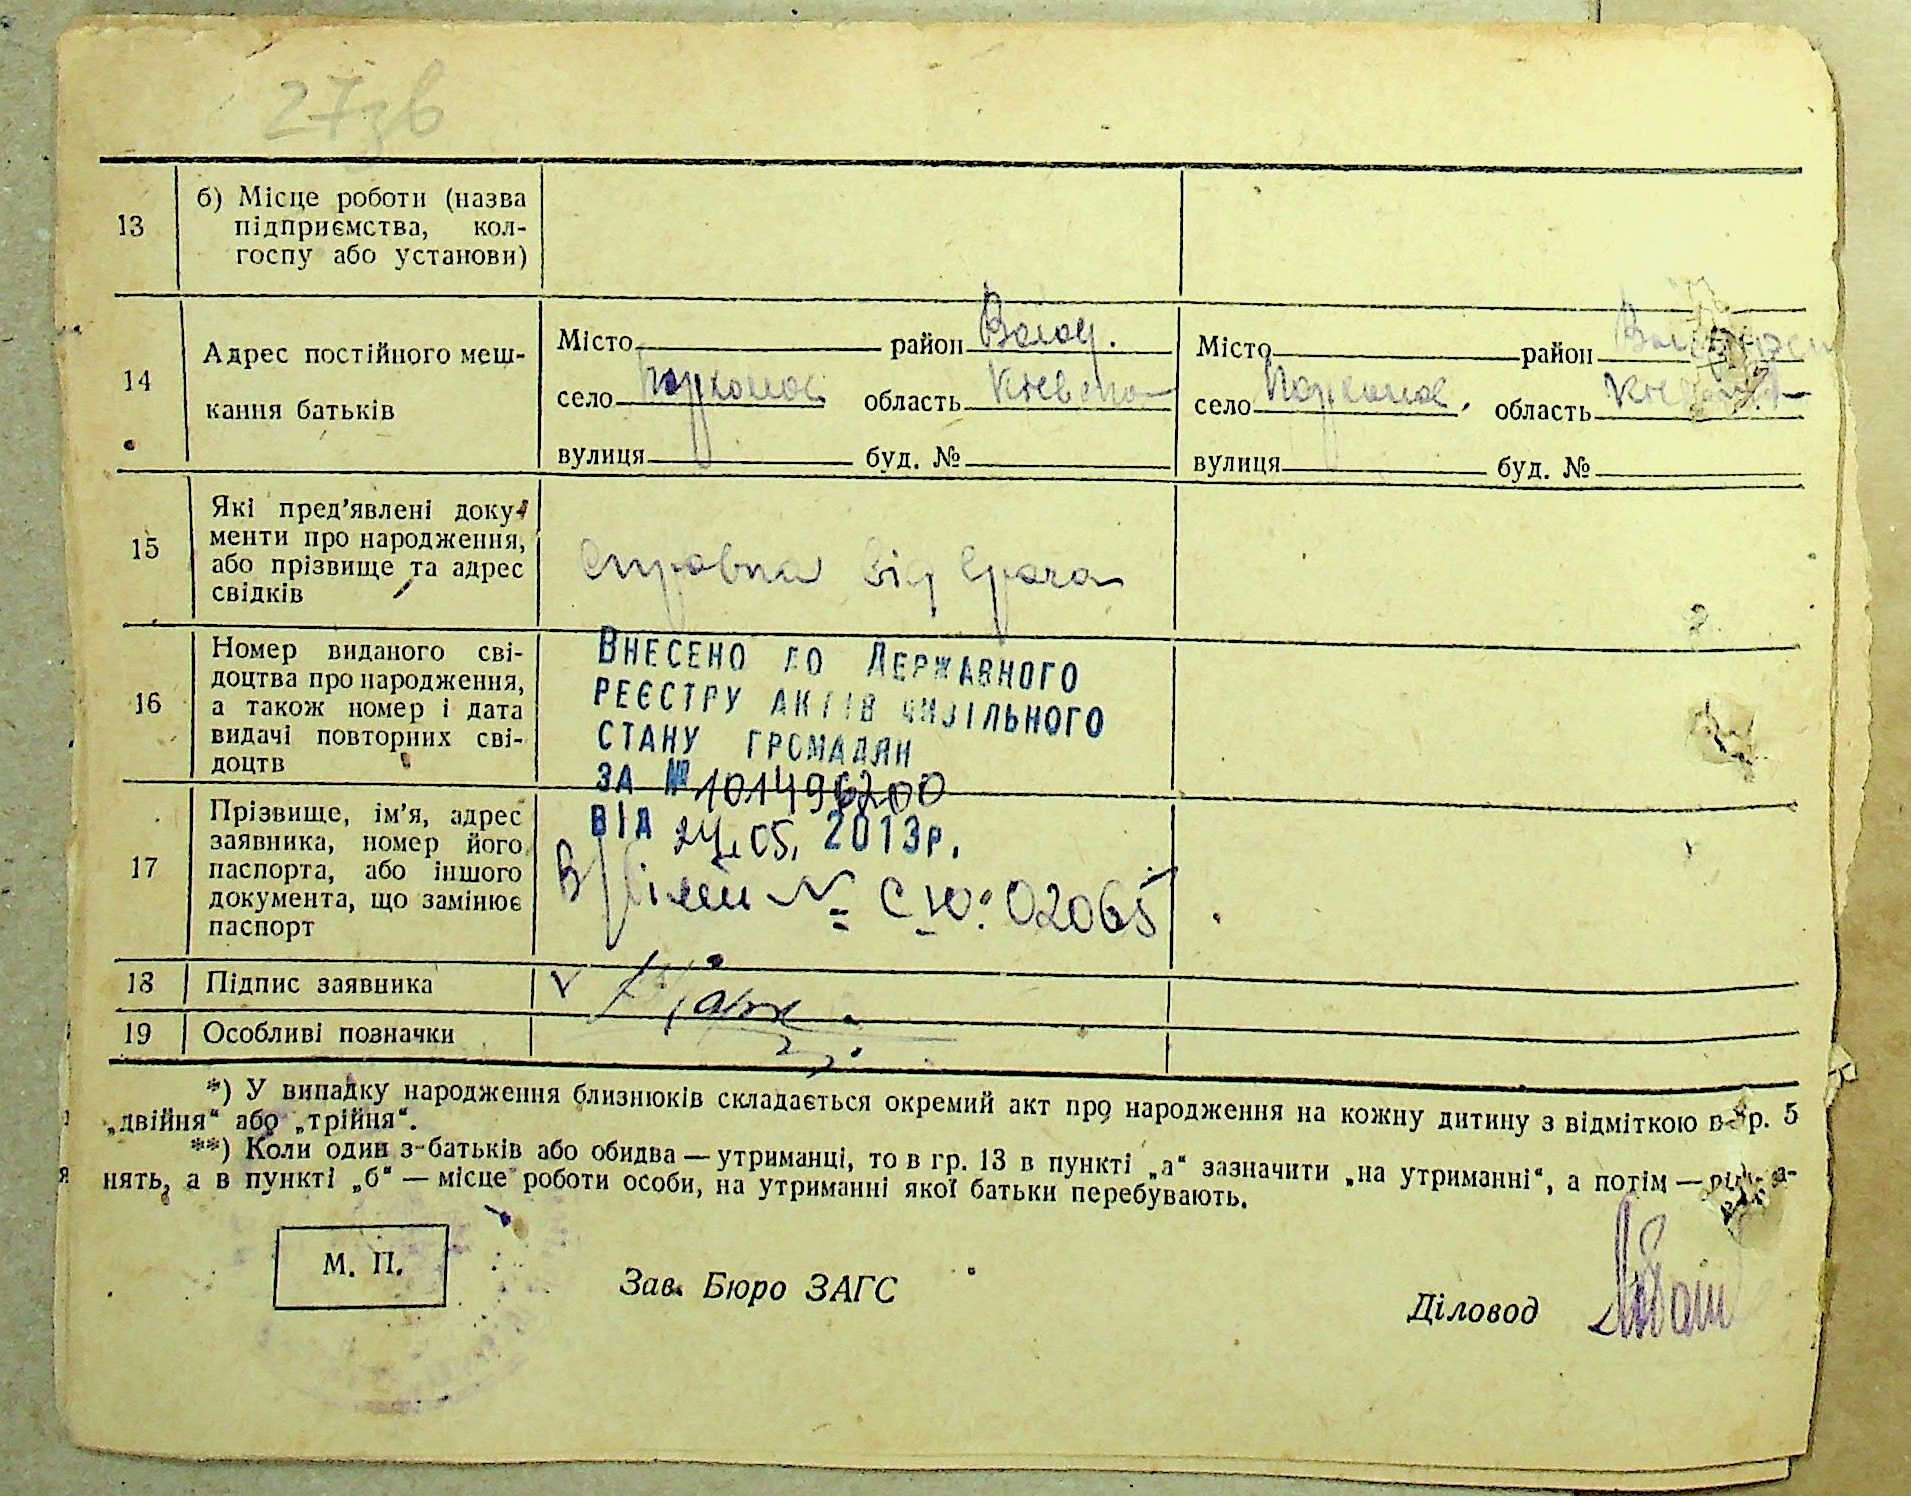 27зв
13
б) Місце роботи (назва
підприємства, кол-
госпу або установи)
14
Адрес постійного меш-
кання батьків
Місто район Волод.
село область Київська
вулиця буд. №
Місто район
село область
вулиця буд. №
15
Які пред'явлені доку-
менти про народження,
або прізвище та адрес
свідків
справка від врача
16
Номер виданого сві-
доцтва про народження,
а також номер і дата
видачі повторних сві-
доцтв
ВНЕСЕНО ДО ДЕРЖАВНОГО
РЕЄСТРУ АКТІВ ЦИВІЛЬНОГО
СТАНУ ГРОМАДЯН
ЗА № 101496200
ВІД 24.05. 2013р.
17
Прізвище, ім'я, адрес
заявника, номер його
паспорта, або іншого
документа, що замінює
паспорт
№ СЮ: 02065
18
Підпис заявника
V
19
Особливі позначки
*) У випадку народження близнюків складається окремий акт про народження на кожну дитину з відміткою в гр. 5
„двійня“ або „трійня“.
**) Коли один з батьків або обидва — утриманці, то в гр. 13 в пункті „а“ зазначити „на утриманні“, а потім —
нять, а в пункті „б“ — місце роботи особи, на утриманні якої батьки перебувають.
М. П.
Зав. Бюро ЗАГС
Діловод